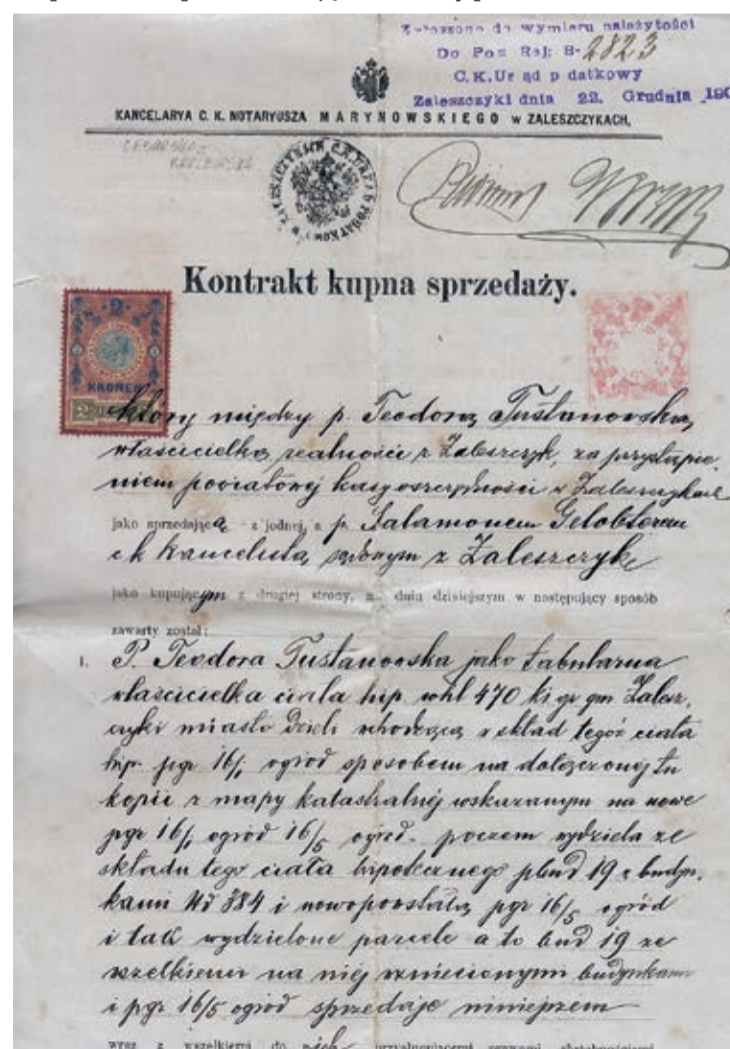 Zgłoszono do wymiaru należytości
Do Poz Rej: B- 2823
C.K.Urząd podatkowy
Zaleszczyki dnia 22. Grudnia 190
KANCELARYA C. K. NOTARYUSZA MARYNOWSKIEGO w ZALESZCZYKACH,
CESARSKO-
ZALESZCZYKACH C.K. URZĄD PODATKOWY W
Kontrakt kupna sprzedaży.
2
KRONEN
2
który między p. Teodorą Tustanowską
właścicielką realności z Zaleszczyk, za przystąpie
niem powiatowej kasy oszczędności w Zaleszczykach
jako sprzedającą z jednej, a p. Salamonem
c k kancelistą sądowym z Zaleszczyk
jako kupującym z drugiej strony, w dniu dzisiejszym w następujący sposób
zawarty został:
1. P. Teodora Tustanowska jako tabularna
właścicielka ciała hip. whl 470 ks gr gm Zalesz.
czyki miasto dzieli wchodzącą w skład tegoż ciała
hip. pgr 16/1 ogród sposobem na dołączonej tu
kopii z mapy katastralnej wskazanym na nowe
pgr 16/1 ogród 16/5 ogród. poczem wydziela ze
składu tego ciała hipotecznego pbud 19 z budyn.
kami Nd 384 i nowopowstałą pgr 16/5 ogród
i tak wydzielone parcele a to bud 19 ze
wszelkiemi na niej wzniesionymi budynkami
i pgr 16/5 ogród sprzedaje niniejszem
wraz z wszelkiemi do nich przynależącemi prawami